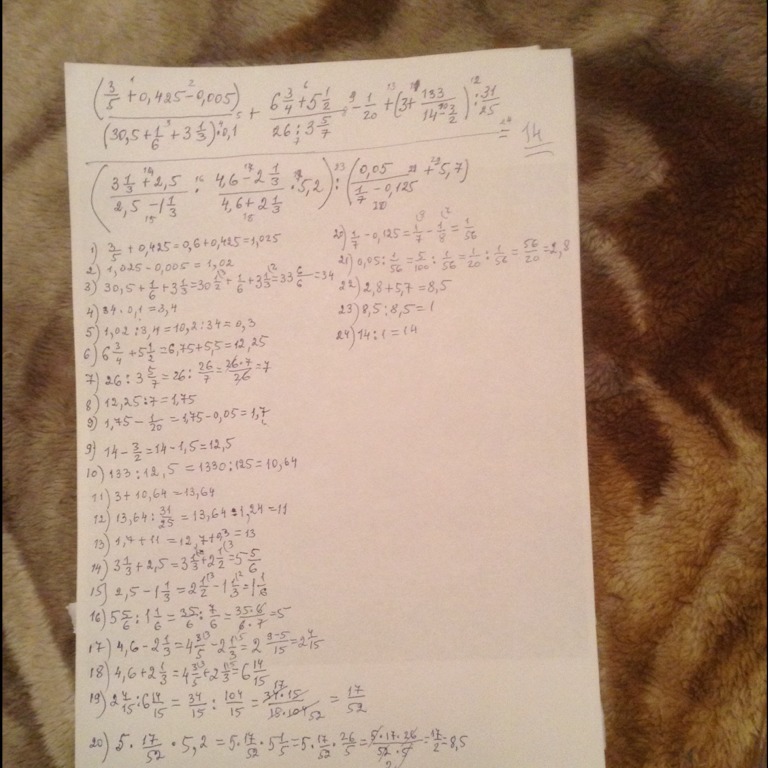 (3/5 + 0,425 - 0,005) / ((30,5 + 1/6 + 3 1/3) : 0,1) + (6 3/4 + 5 1/2) / (26 : 3 5/7) - 1/20 + (3 + 133 / (14 - 3/2)) : 31/25
= 14
((3 1/3 + 2,5) / (2,5 - 1 1/3) : (4,6 - 2 1/3) / (4,6 + 2 1/3) · 5,2) : (0,05 / (1/7 - 0,125) + 5,7)
1) 3/5 + 0,425 = 0,6 + 0,425 = 1,025
2) 1,025 - 0,005 = 1,02
3) 30,5 + 1/6 + 3 1/3 = 30 1/2 + 1/6 + 3 1/3 = 33 6/6 = 34
4) 34 · 0,1 = 3,4
5) 1,02 : 3,4 = 10,2 : 34 = 0,3
6) 6 3/4 + 5 1/2 = 6,75 + 5,5 = 12,25
7) 26 : 3 5/7 = 26 : 26/7 = 26·7/26 = 7
8) 12,25 : 7 = 1,75
9) 1,75 - 1/20 = 1,75 - 0,05 = 1,7
9) 14 - 3/2 = 14 - 1,5 = 12,5
10) 133 : 12,5 = 1330 : 125 = 10,64
11) 3 + 10,64 = 13,64
12) 13,64 : 31/25 = 13,64 : 1,24 = 11
13) 1,7 + 11 = 12,7 + 0,3 = 13
14) 3 1/3 + 2,5 = 3 1/3 + 2 1/2 = 5 5/6
15) 2,5 - 1 1/3 = 2 1/2 - 1 1/3 = 1 1/6
16) 5 5/6 : 1 1/6 = 35/6 : 7/6 = 35·6/6·7 = 5
17) 4,6 - 2 1/3 = 4 3/5 - 2 1/3 = 2 9-5/15 = 2 4/15
18) 4,6 + 2 1/3 = 4 3/5 + 2 1/3 = 6 14/15
19) 2 4/15 : 6 14/15 = 34/15 : 104/15 = 34·15/15·104 = 17/52
20) 5 · 17/52 · 5,2 = 5 · 17/52 · 5 1/5 = 5 · 17/52 · 26/5 = 5·17·26/52·5 = 17/2 = 8,5
20) 1/7 - 0,125 = 1/7 - 1/8 = 1/56
21) 0,05 : 1/56 = 5/100 : 1/56 = 1/20 : 1/56 = 56/20 = 2,8
22) 2,8 + 5,7 = 8,5
23) 8,5 : 8,5 = 1
24) 14 : 1 = 14